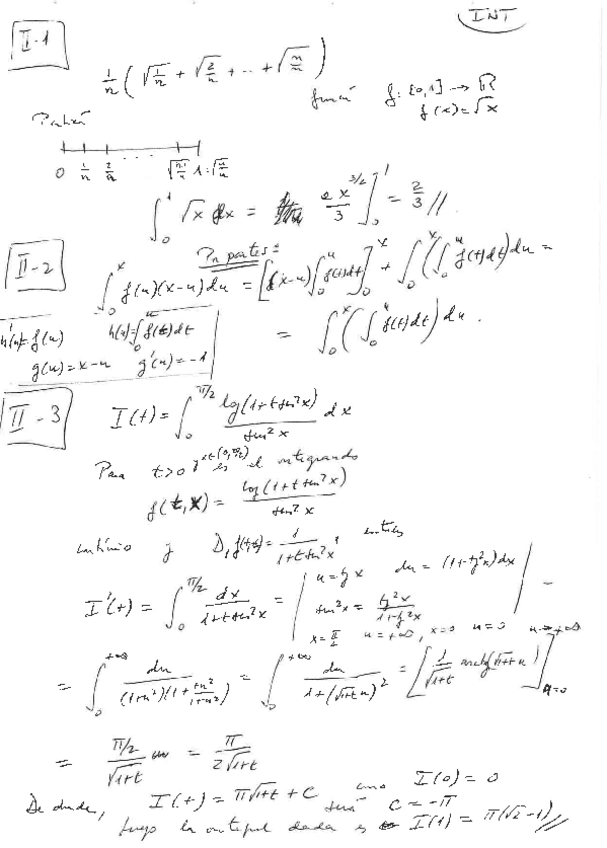 INT
II-1
1/n ( √(1/n) + √(2/n) + ... + √(n/n) )
función f: [0,1] → R
f(x) = √x
0 1/n 2/n ...
∫₀¹ √x dx = 2x^(3/2)/3 ]₀¹ = 2/3 //
II-2
Por partes:
∫₀ˣ f(u)(x-u)du = [(x-u)∫₀ᵘ f(t)dt]₀ˣ + ∫₀ˣ(∫₀ᵘ f(t)dt)du =
h'(u)=f(u) h(u)=∫₀ᵘ f(t)dt
g(u)=x-u g'(u)=-1
= ∫₀ˣ(∫₀ᵘ f(t)dt)du.
II-3
I(t) = ∫₀^(π/2) log(1+t sen²x)/sen²x dx
Para t>0 y x∈(0,π/2) es el integrando
f(t,x) = log(1+t sen²x)/sen²x
continuo y D₁f(t,x) = 1/(1+t sen²x), entonces
I'(t) = ∫₀^(π/2) dx/(1+t sen²x) = | u=tg x du=(1+tg²x)dx
sen²x = tg²x/(1+tg²x)
x=π/2 u=+∞, x=0 u=0 | =
= ∫₀^(+∞) du/((1+u²)(1+tu²/(1+u²))) = ∫₀^(+∞) du/(1+(√(1+t) u)²) = [1/√(1+t) arctg(√(1+t) u)]_(u=0)^(u→+∞)
= (π/2)/√(1+t) = π/(2√(1+t))
De donde, I(t) = π√(1+t) + C como I(0) = 0
será C = -π
luego la integral dada es I(1) = π(√2-1) //